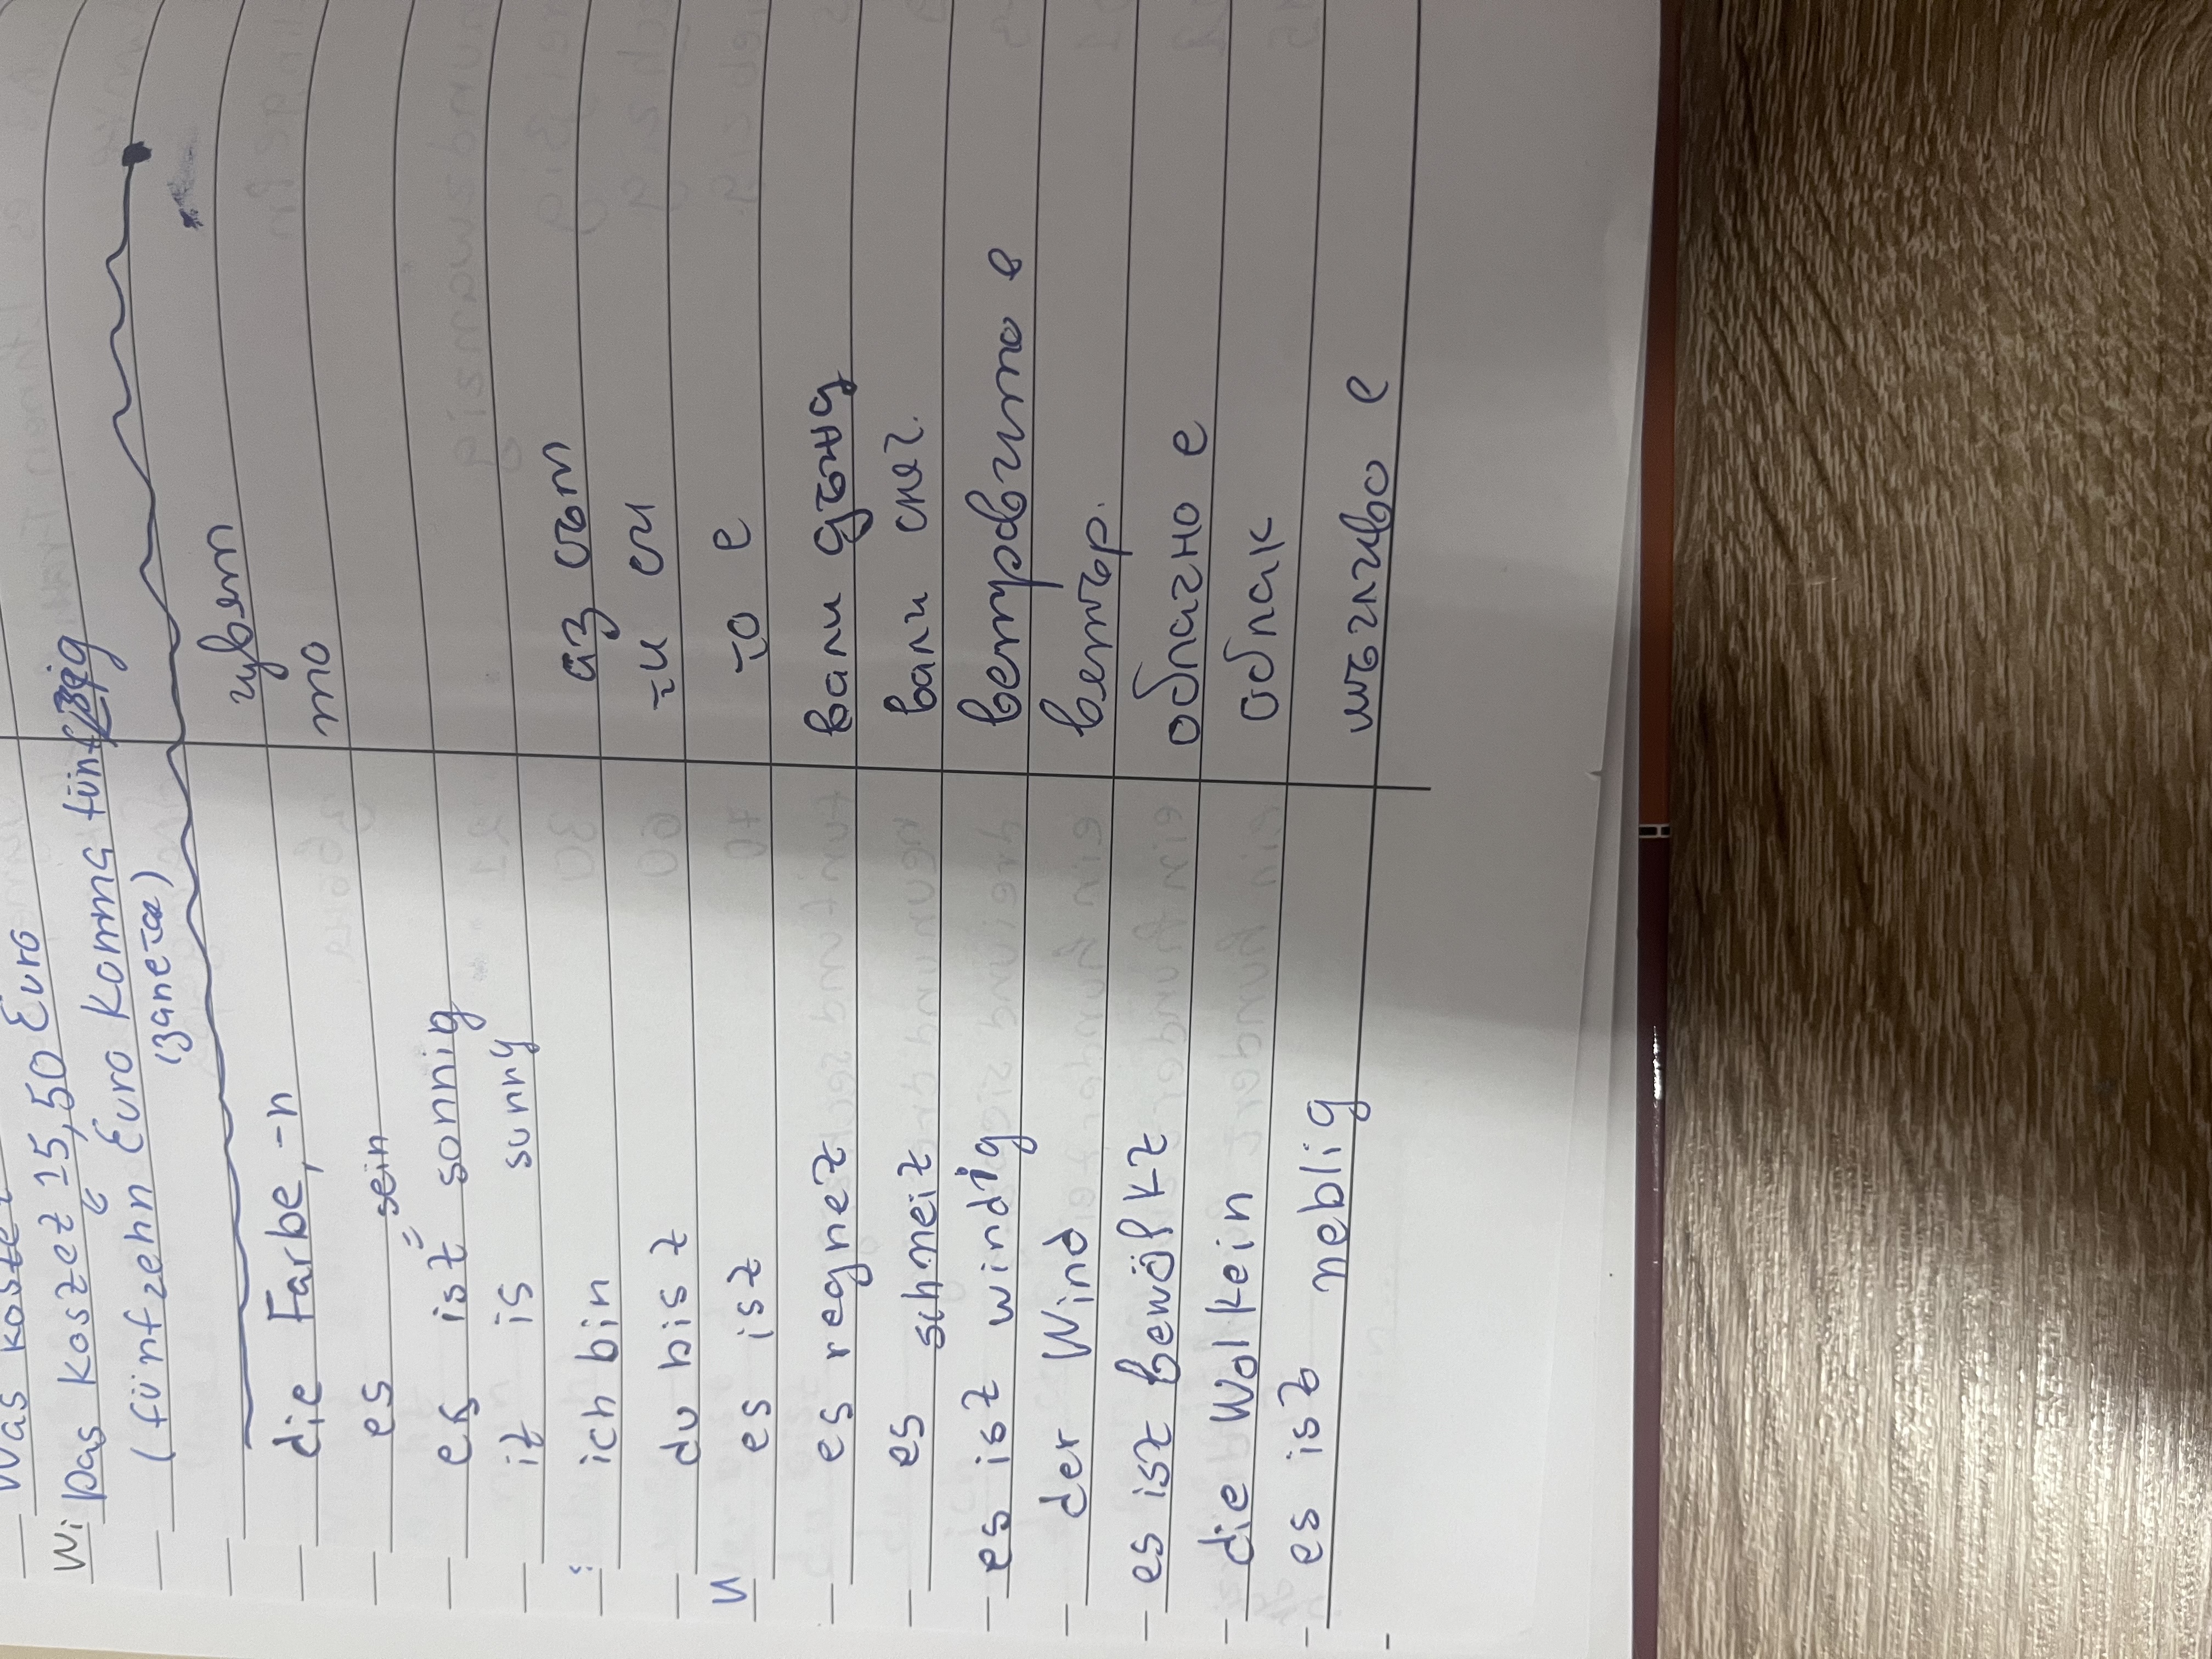 Was kostet Euro
Wi Das kostet 15,50 Euro
(fünfzehn Euro Komma fünfzig
(запетая)
die Farbe, -n цвят
es то
sein
es ist sonnig
it is sunny
ich bin аз съм
du bist ти си
es ist то е
es regnet вали дъжд
es schneit вали сняг.
es ist windig ветровито е
der Wind вятър.
es ist bewölkt облачно е
die Wolkein облак
es ist neblig мъгливо е